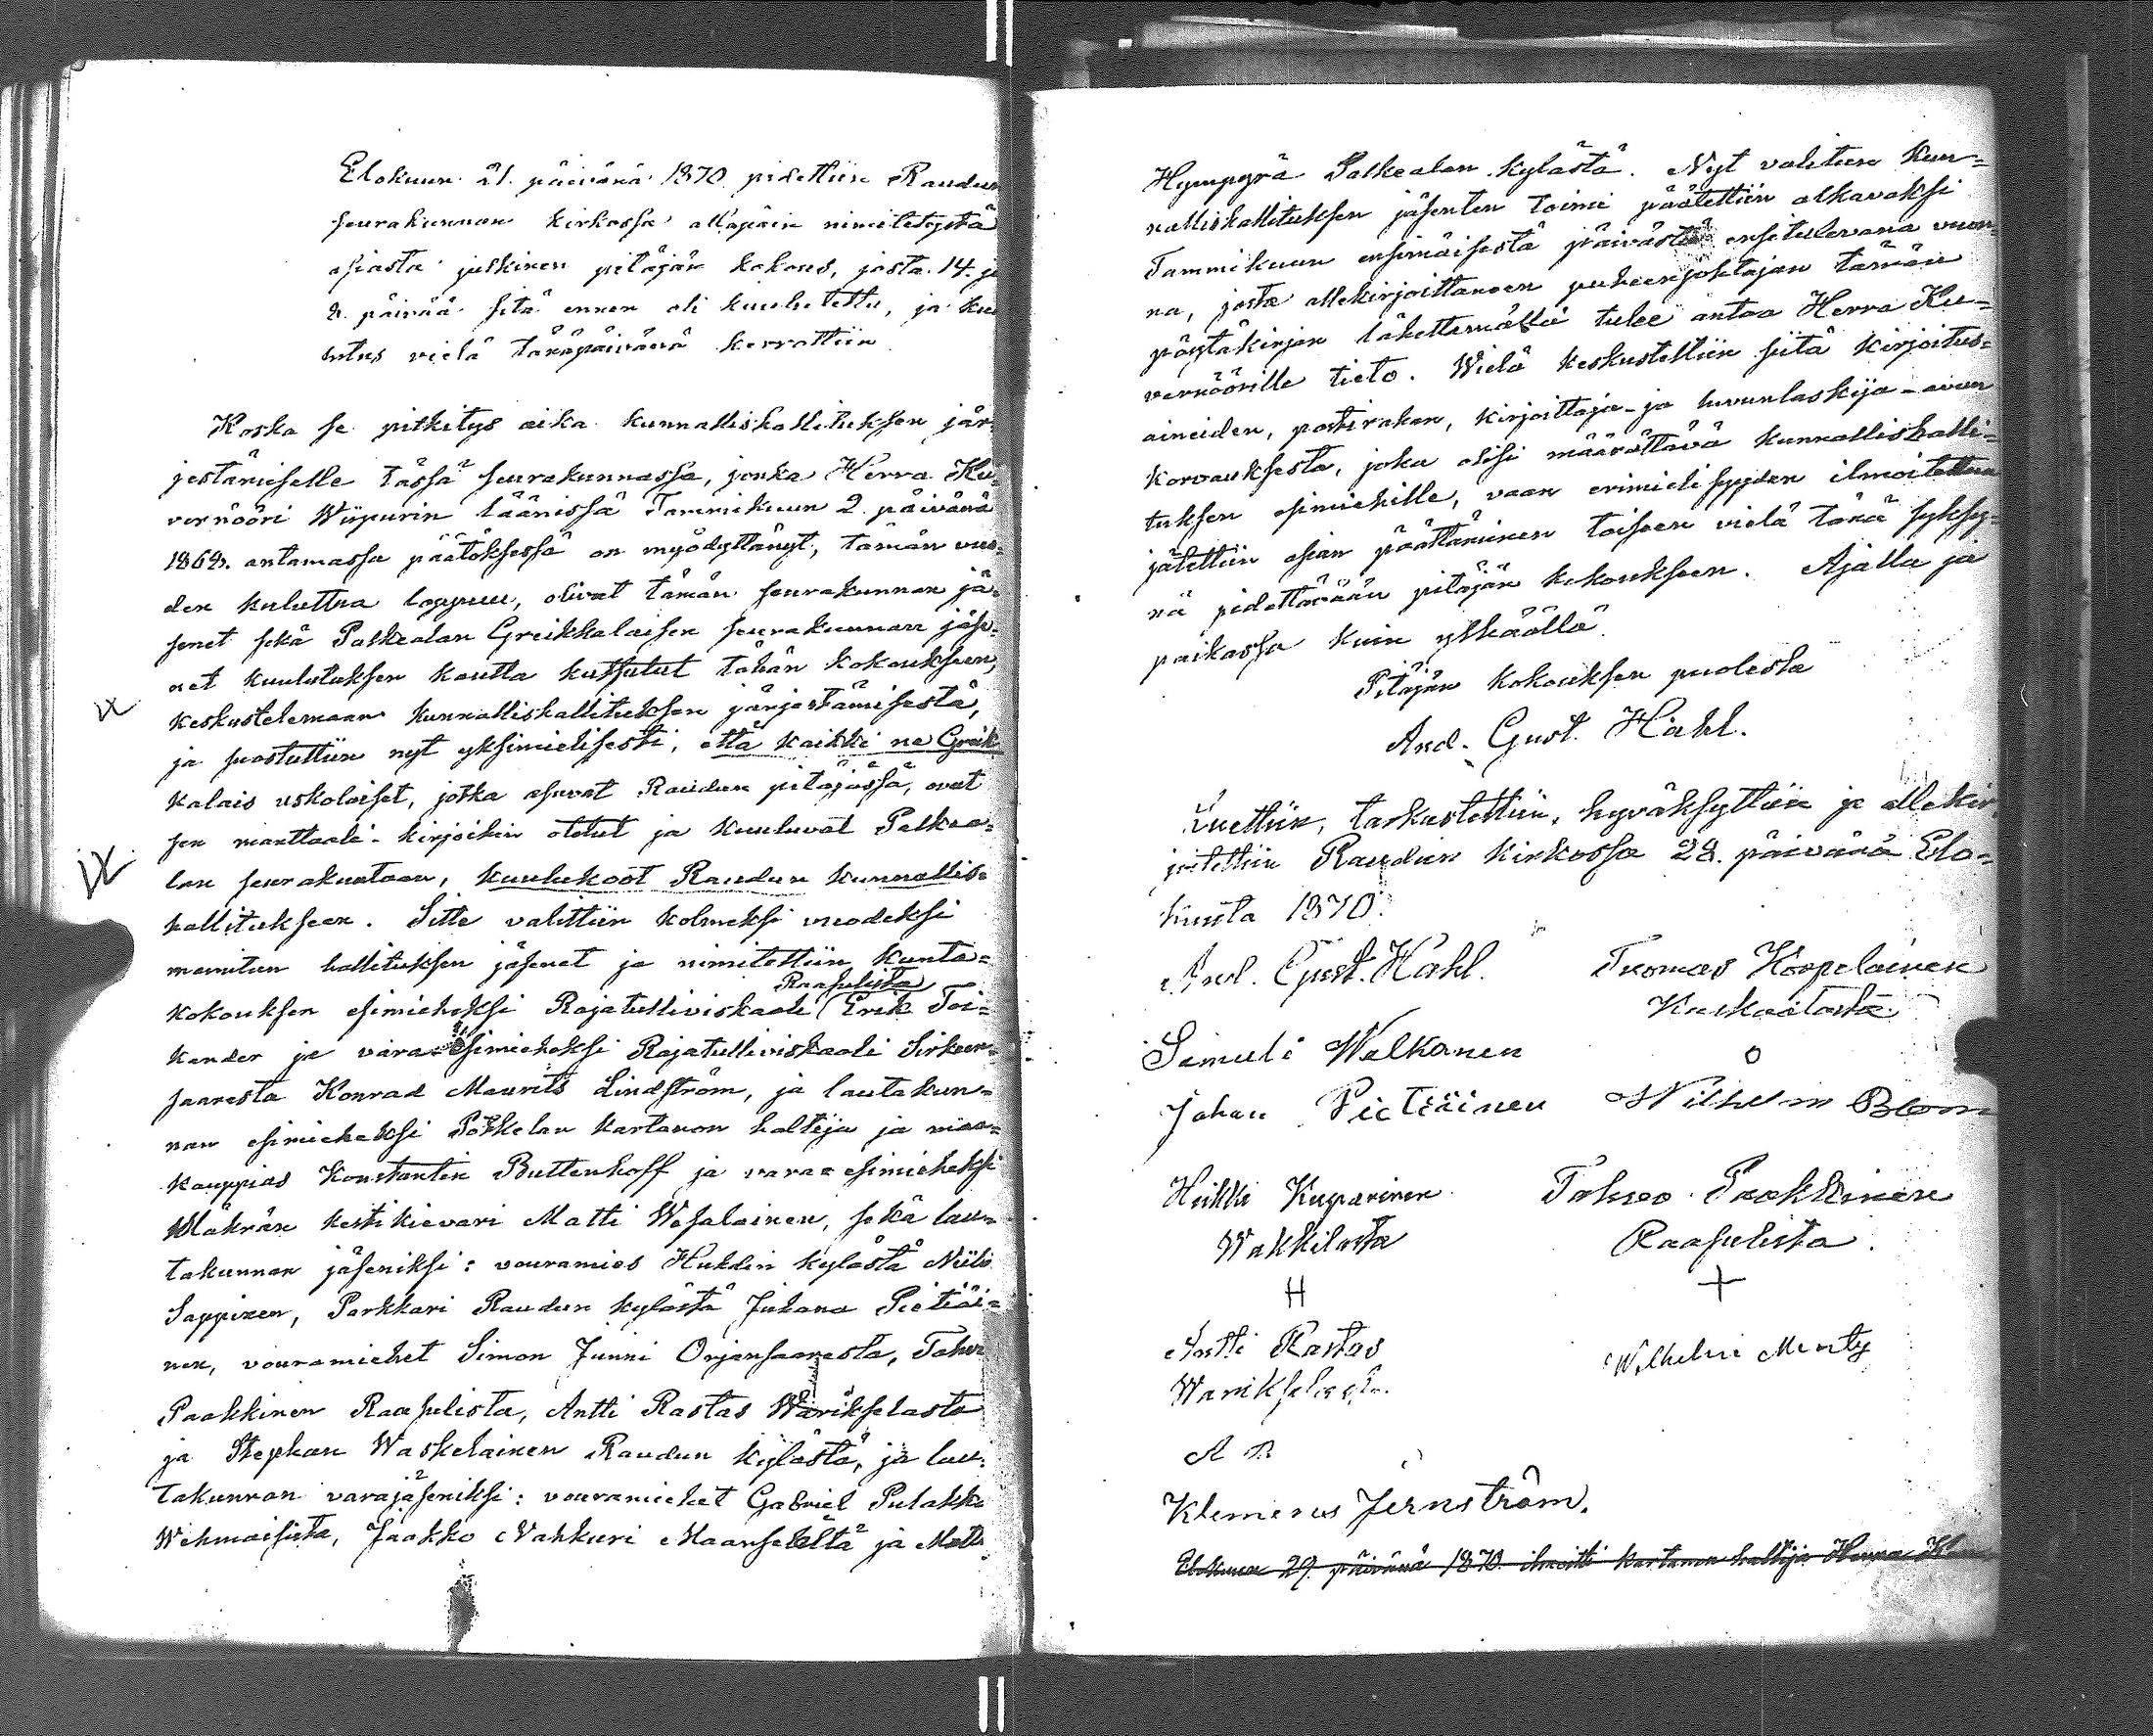 Elokuun 21. päivänä 1870 pidettiin Raudun
seurakunnan kirkossa allapäin nimitetystä
asiasta julkinen pitäjän kokous, josta 14. ja
8. päivää sitä ennen oli kuulutettu, ja kuu
lutus vielä tänäpäivänä kerrottiin
Koska se pitkitys aika kunnallishallituksen jär
jestämiselle tässä seurakunnassa, jonka Herra Ku-
vernööri Wiipurin läänissä Tammikuun 2. päivänä
1869. antamassa päätöksessä on myödyttänyt, tämän vuo-
den kuluttua loppuu, olivat tämän seurakunnan jä-
senet sekä Palkealan Greikkalaisen seurakunnan jäse-
net kuulutuksen kautta kutsutut tähän kokoukseen,
keskustelemaan kunnallishallituksen järjestämisestä,
ja suostuttiin nyt yksimielisesti, että kaikki ne Greik
kalais uskolaiset, jotka asuvat Raudun pitäjässä, ovat
sen manttaali-kirjoihin otetut ja kuuluvat Palkea-
lan seurakuntaan, kuulukoot Raudun kunnallis-
hallitukseen. Sitte valittiin kolmeksi vuodeksi
mainitun hallituksen jäsenet ja nimitettiin kunta-
Raasulista
kokouksen esimieheksi Rajatulliviskaali Erik Toi-
kander ja vara-esimieheksi Rajatulliviskaali Sirkeen-
saaresta Konrad Maurits Lindström, ja lautakun-
nan esimieheksi Pölkelan kartanon haltija ja maa-
kauppias Konstantin Buttenhoff ja vara-esimieheksi
Mäkrän kestikievari Matti Wesalainen, sekä lau-
takunnan jäseniksi: vouramies Huhdin kylästä Niilo
Sappinen, Parkkari Raudun kylästä Juhana Pietiäi-
nen, vouramiehet Simon Junni Orjansaaresta, Tahvo
Paakkinen Raasulista, Antti Rastas Warikselasta
ja Stephan Waskelainen Raudun kylästä, ja lau-
takunnan varajäseniksi: vouramiehet Gabriel Pulakka
Wehmaisista, Jaakko Nahkuri Maanselältä ja Matti
Hympyrä Palkealan kylästä. Nyt valitun kun-
nallishallituksen jäsenten toimi päätettiin alkavaksi
Tammikuun ensimäisestä päivästä ensitulevana vuon
na, josta allekirjoittaneen puheenjohtajan tämän
pöytäkirjan lähettemällä tulee antaa Herra Ku-
vernöörille tieto. Wielä keskusteltiin siitä kirjoitus-
aineiden, postirahan, kirjoittaja- ja luvunlaskija-avun
korvauksesta, joka olisi määrättävä kunnallishalli-
tuksen esimiehille, vaan erimielisyyden ilmoitettua
jätettiin asian päättäminen toiseen vielä tänä syksy-
nä pidettävään pitäjän kokoukseen. Ajalla ja
paikassa kuin ylhäällä.
Pitäjän kokouksen puolesta
And. Gust. Hahl.
Luettiin, tarkastettiin, hyväksyttiin ja allekir
joitettiin Raudun kirkossa 28. päivänä Elo-
kuuta 1870.
And. Gust. Hahl. Tuomas Koopelainen
Kuskaalasta
Simuli Walkonen o
Johan Pietiäinen Wilhelm Blom
Heikki Kuparinen Tahvo Paakkinen
Wakkilasta Raasulista.
H +
Antti Rastas Wilhelm Menty
Warikselasta.
A R
Klemens Jernström.
Elokuun 29. päivänä 1870. ilmoitti kartanon haltija Herra